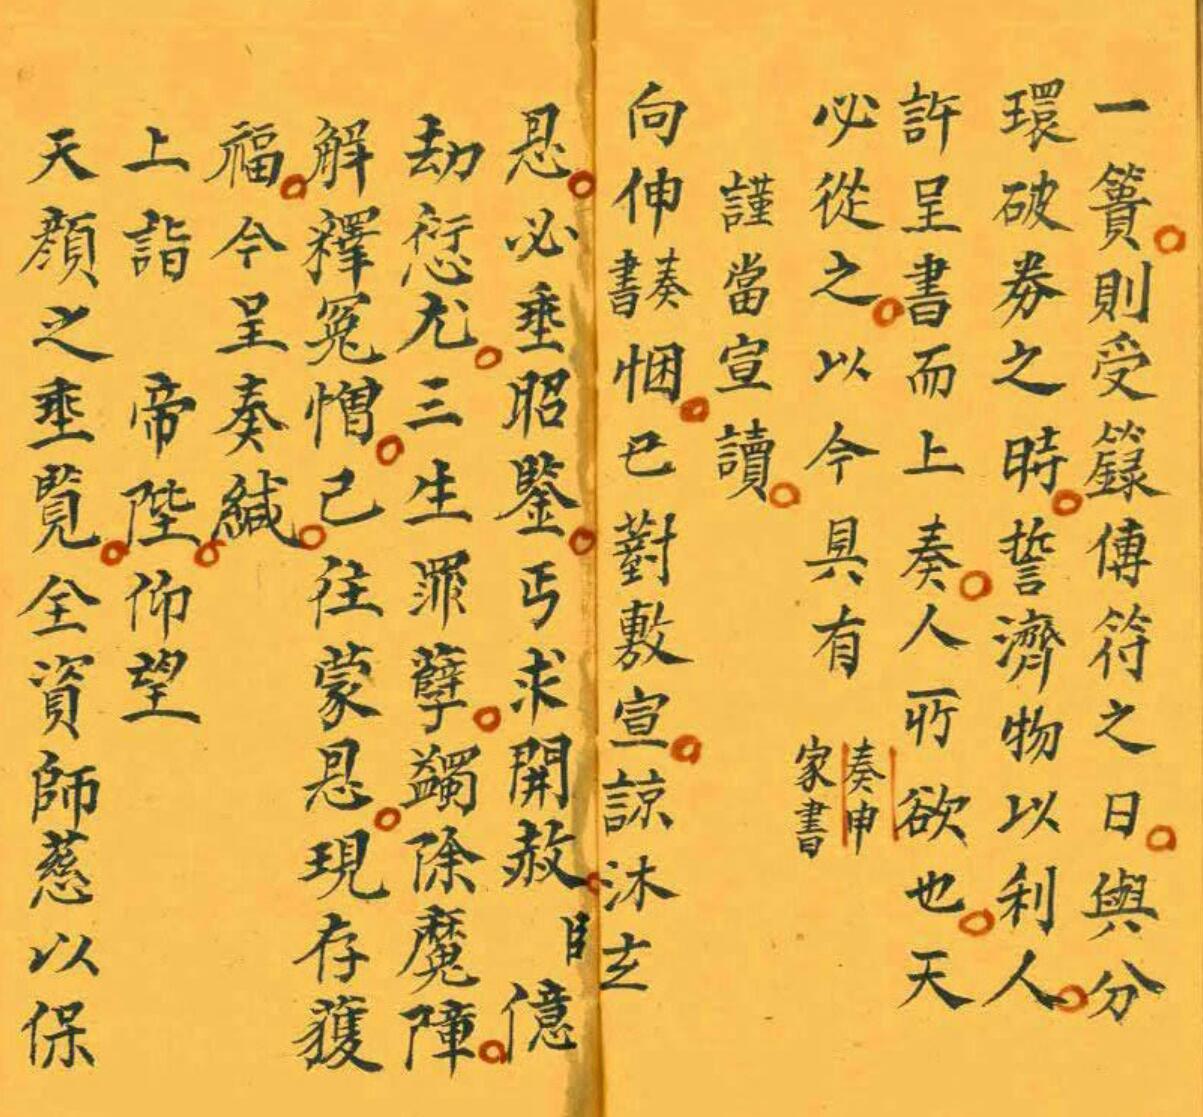 一簣則受籙傳符之日與分
環破券之時誓濟物以利人
許呈書而上奏人所欲也天
必從之以今具有奏申家書
謹當宣讀
向伸奏書悃已對敷宣諒沐玄
恩必垂昭鑒丐求開赦 億
劫愆尤三生罪孽蠲除魔障
解釋冤憎己往蒙恩現存獲
福今呈奏緘
上詣 帝陛仰望
天顏之垂覧全資師慈以保